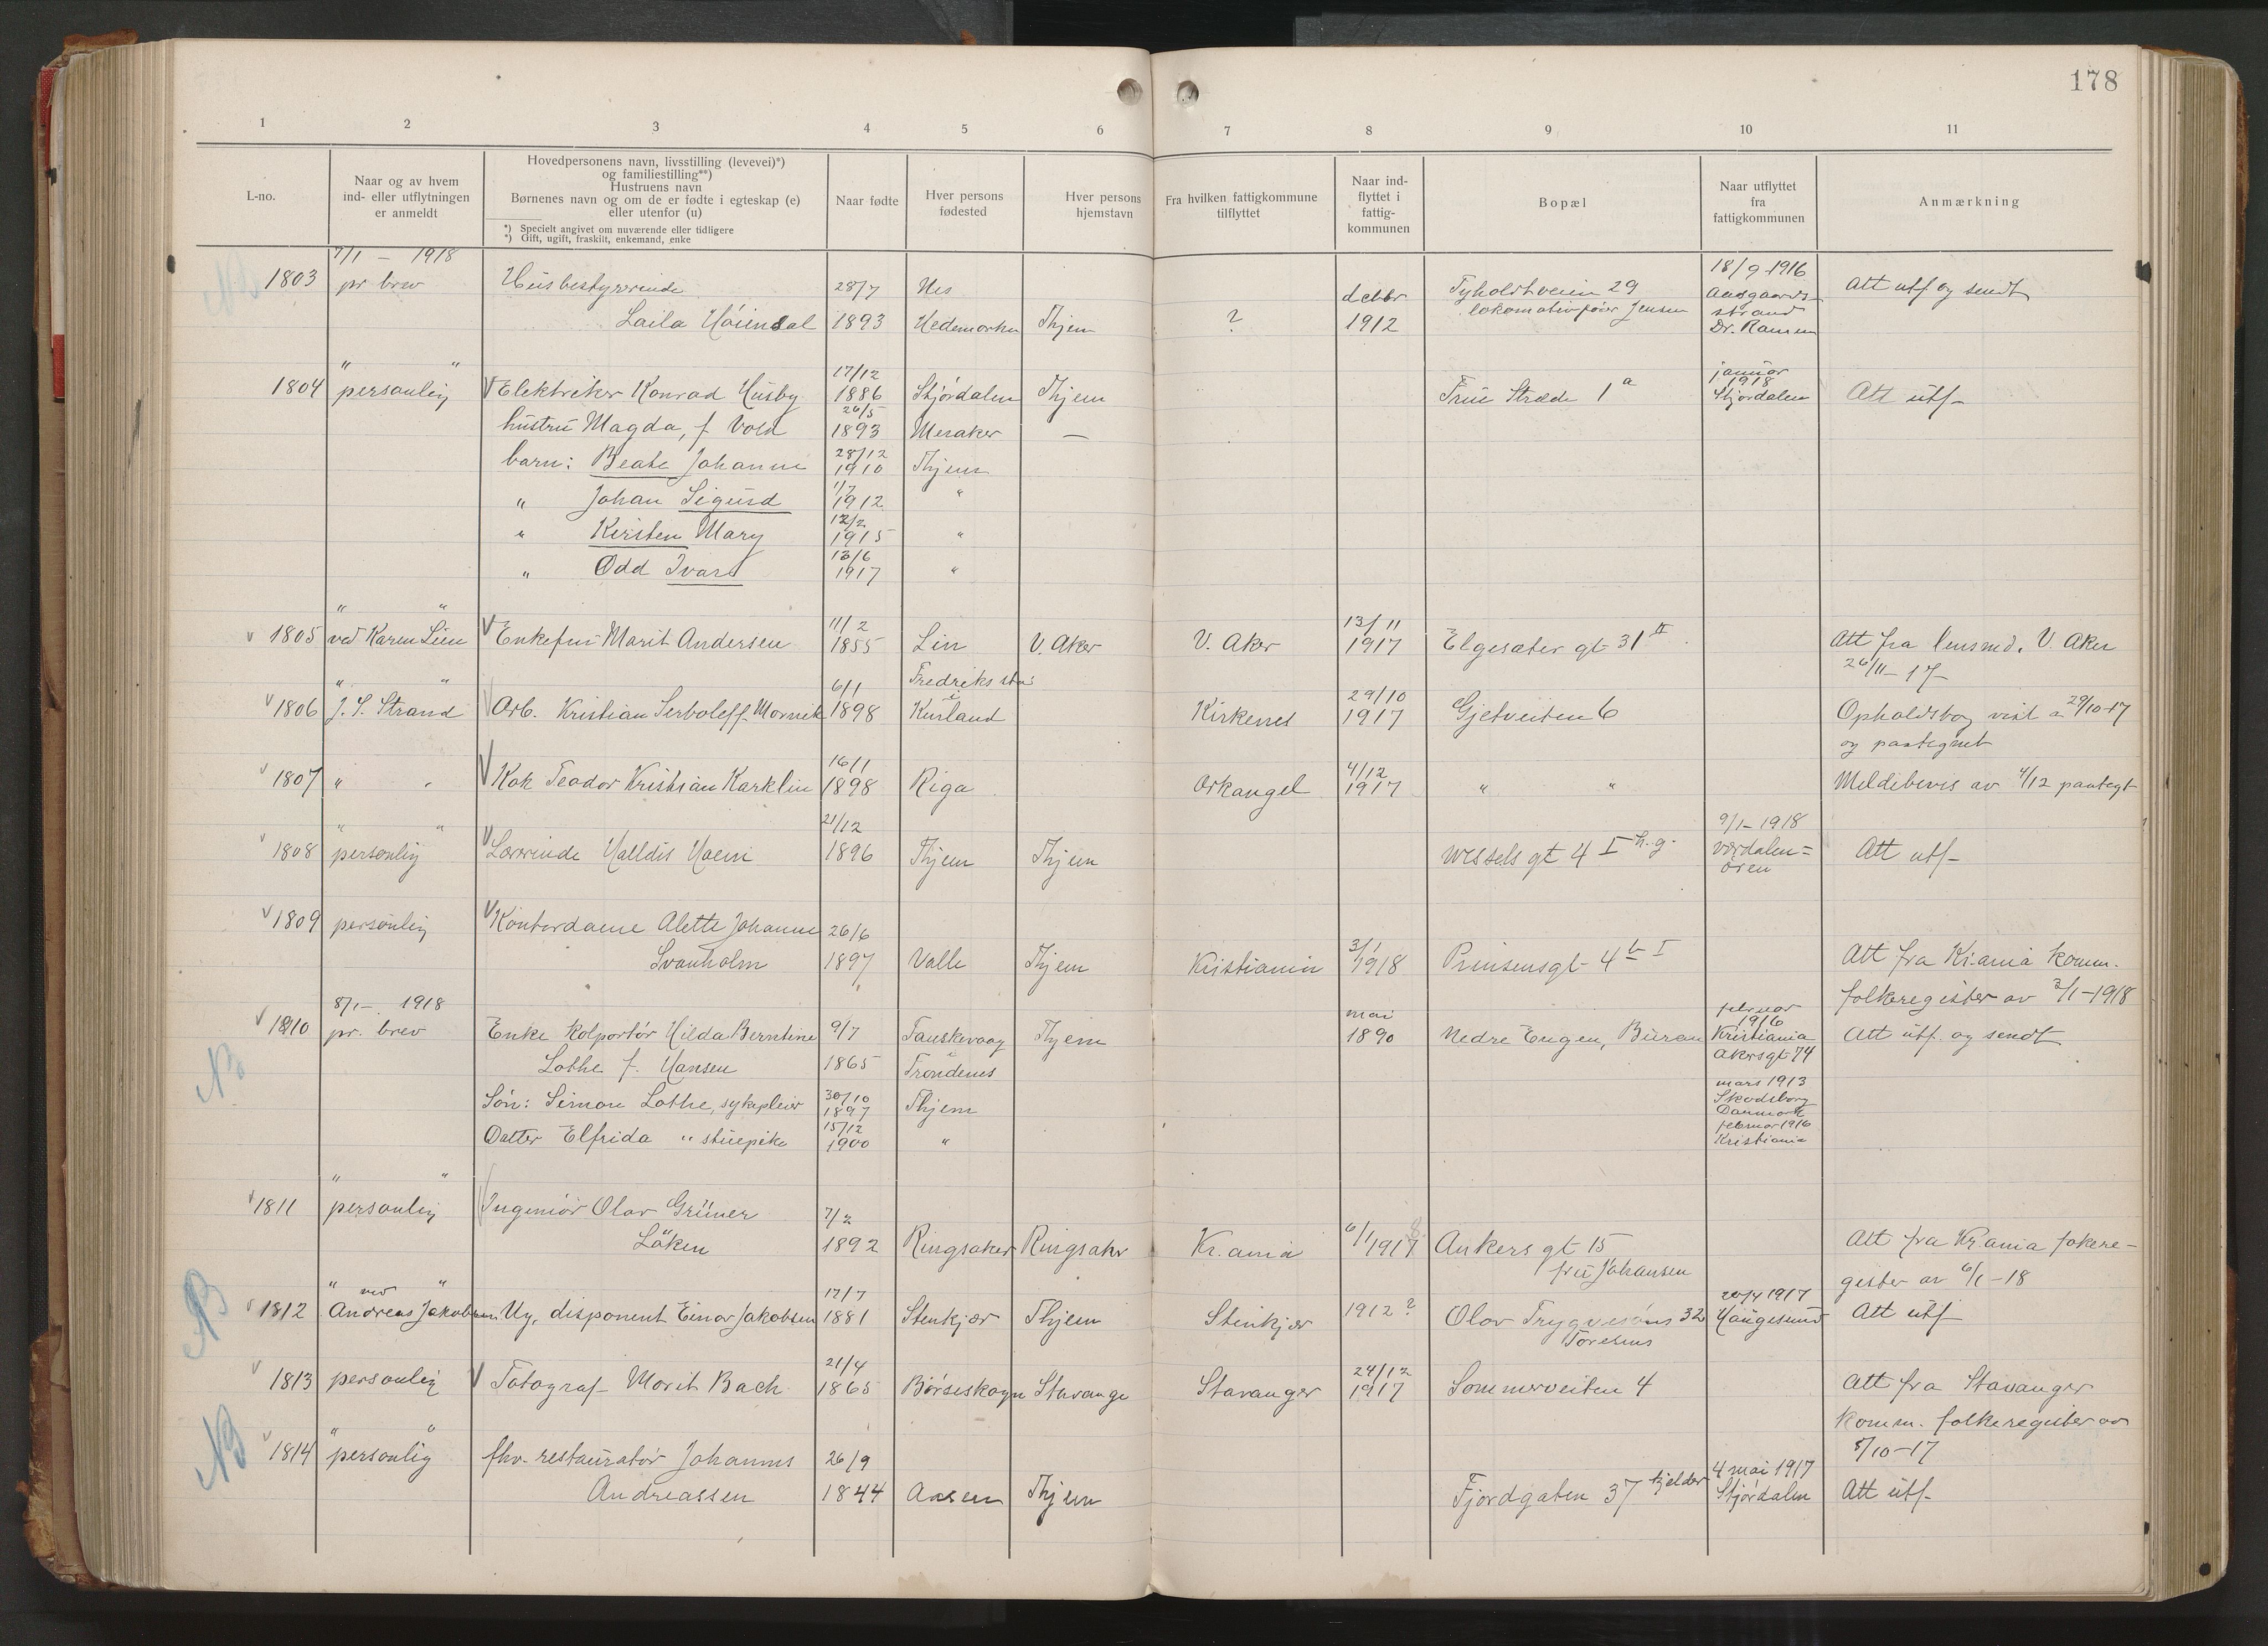 178
1 2 3 4 5 6 7 8 9 10 11
L-no.
Naar og av hvem
ind- eller utflytningen
er anmeldt
Hovedpersonens navn, livsstilling (levevei)*)
og familiestilling**)
Hustruens navn
Børnenes navn og om de er fødte i egteskap (e)
eller utenfor (u)
*) Specielt angivet om nuværende eller tidligere
*) Gift, ugift, fraskilt, enkemand, enke
Naar fødte
Hver persons
fødested
Hver persons
hjemstavn
Fra hvilken fattigkommune
tilflyttet
Naar ind-
flyttet i
fattig-
kommunen
Bopæl
Naar utflyttet
fra
fattigkommunen
Anmærkning
7/1 – 1918
NB 1803 pr brev Husbestyrerinde 28/7 Nes decbr Tyholtveien 29 18/9 1916 Att utf og sendt
Laila Høiensal 1893 Hedemarken Thjem ? 1912 lokomotivfører Jensen Aasgaards-
strand
" " 17/12 januar
1804 personlig V Elektriker Konrad Husby 1886 Stjørdalen Thjem Frue Stræde 1a 1918 Stjørdalen Att utf
hustru Magda, f. Vold 26/5 1893 Meraker —
barn: Beate Johanne 28/12 1910 Thjem
" Johan Sigurd 1/7 1912 "
" Kirsten Mary 12/2 1915 "
" Odd Ivar 13/6 1917 "
" " 11/2 13/11
v 1805 ved Karen Lien V Enkefru Marit Andersen 1855 Lin V. Aker V. Aker 1917 Elgesæter gt 31 II Att fra lensmd. V. Aker
26/11–17
" " 6/1 Fredriksstad i 29/10
v 1806 J. S. Strand V Arb. Kristian 1898 Kurland Kirkenes 1917 Gjetveiten 6 Opholdsbog vist 29/10-17
og paategnet
v 1807 " " V Kok Teodor Kristian Karklin 16/1 1898 Riga Arkangel 4/12 1917 " " Meldebevis av 4/12 paategt
" " 21/12 9/1–1918
v 1808 personlig V Lærerinde Halldis Moen 1896 Thjem Thjem Wessels gt 4 I h.g. Værdalen=
øren Att utf
v 1809 personlig V Kontordame Alette Johanne 26/6
Svanholm 1897 Valle Thjem Kristiania 3/1 1918 Prinsensgt 4 b I Att fra Kr.ania komm.
folkeregister av 2/1–1918
8/1– 1918 mai februar 1916
v 1810 pr. brev Enke kolportør Hilda Berntine 9/7 Tauskevaag Thjem 1890 Nedre Engen, Buran Kristiania Att utf. og sendt
NB Lothe f. Hansen 1865 Trondenes Akersgt 74
Søn: Simon Lothe, sykepleier 30/10 1897 Thjem mars 1913
Skodsborg
Danmark
Datter Elfrida " stuepike 15/12 1900 " februar 1916
Kristiania
" "
v 1811 personlig V Ingeniør Olav Grüner 7/2
Løken 1892 Ringsaker Ringsaker Kr.ania 6/1 1917 8 Ankers gt 15 Att fra Kr.ania fokere-
fru Johansen gister av 6/1–18
" ved " 17/7 20/4 1917
NB v 1812 Andreas Jakobsen Ug. disponent Einar Jakobsen 1881 Stenkjær Thjem Stenkjær 1912? Olav Trygvesøns 32 Haugesund Att utf
Toresens
v 1813 personlig V Fotograf Marit Bach 21/4 1865 Børseskogn Stavange Stavanger 24/12 1917 Sommerveiten 4 Att fra Stavanger
komm. folkeregister av
8/10–17
" "
NB v 1814 personlig fhv. restauratør Johannes 26/9 4 mai 1917
Andreassen 1844 Aasen Thjem Fjordgaten 37 kjelder Stjørdalen Att utf.